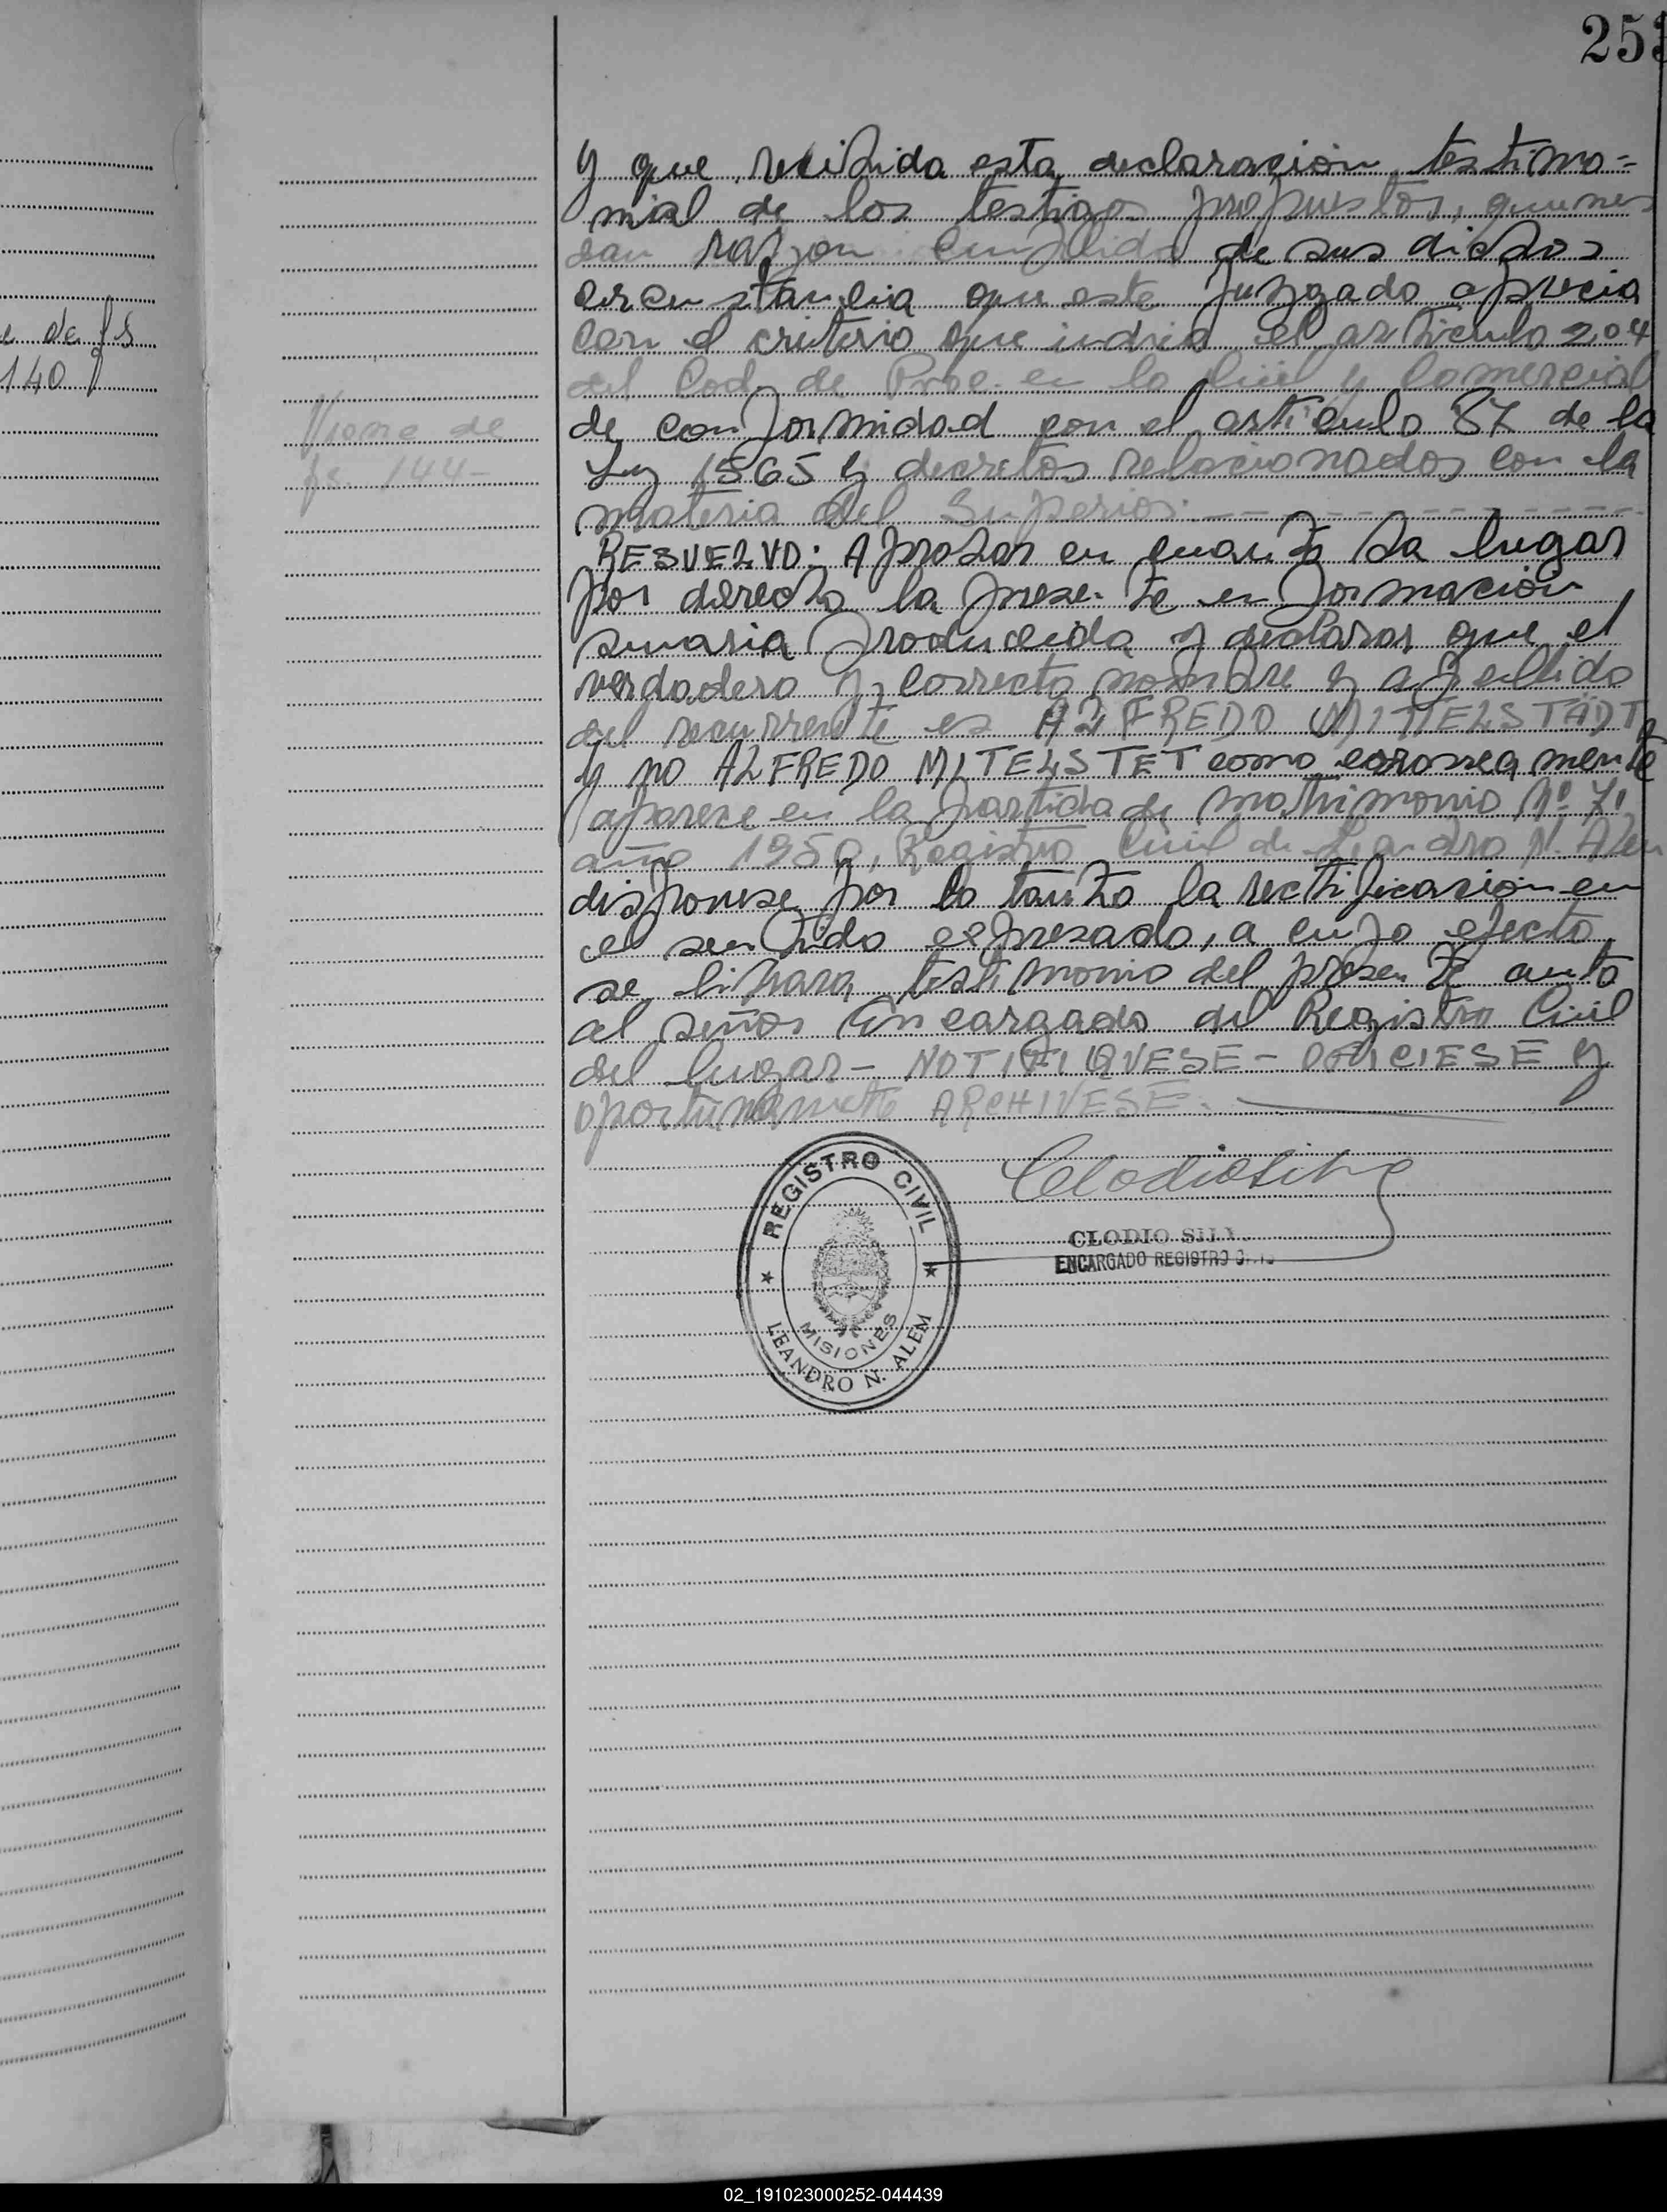 253
e de fs
140
Viene de
fs. 144-
y que recibida esta declaración testimo=
nial de los testigos propuestos, quienes
dan razon cumplida de sus dichos
circunstancia que este Juzgado aprecia
con el criterio que indica el artículo 204
del Cod. de Proc. en lo Civil y Comercial
de conformidad con el artículo 87 de la
Ley 1565 y decretos relacionados con la
materia del Superior.
RESUELVO: Aprobar en cuanto ha lugar
por derecho la presente información
sumaria producida y declarar que el
verdadero y correcto nombre y apellido
del recurrente es ALFREDO MITTELSTÄDT
y no ALFREDO MITELSTET como
aparece en la partida de matrimonio Nº 71
año 1950, Registro Civil de Leandro N. Alem
disponese por lo tanto la rectificación en
el sentido expresado, a cuyo efecto
se librara testimonio del presente auto
al señor Encargado del Registro Civil
del lugar - NOTIFIQUESE - OFICIESE y
oportunamente ARCHIVESE.
Clodio Silva
CLODIO SILV
ENCARGADO REGISTRO
REGISTRO CIVIL
MISIONES
LEANDRO N. ALEM
02_191023000252-044439